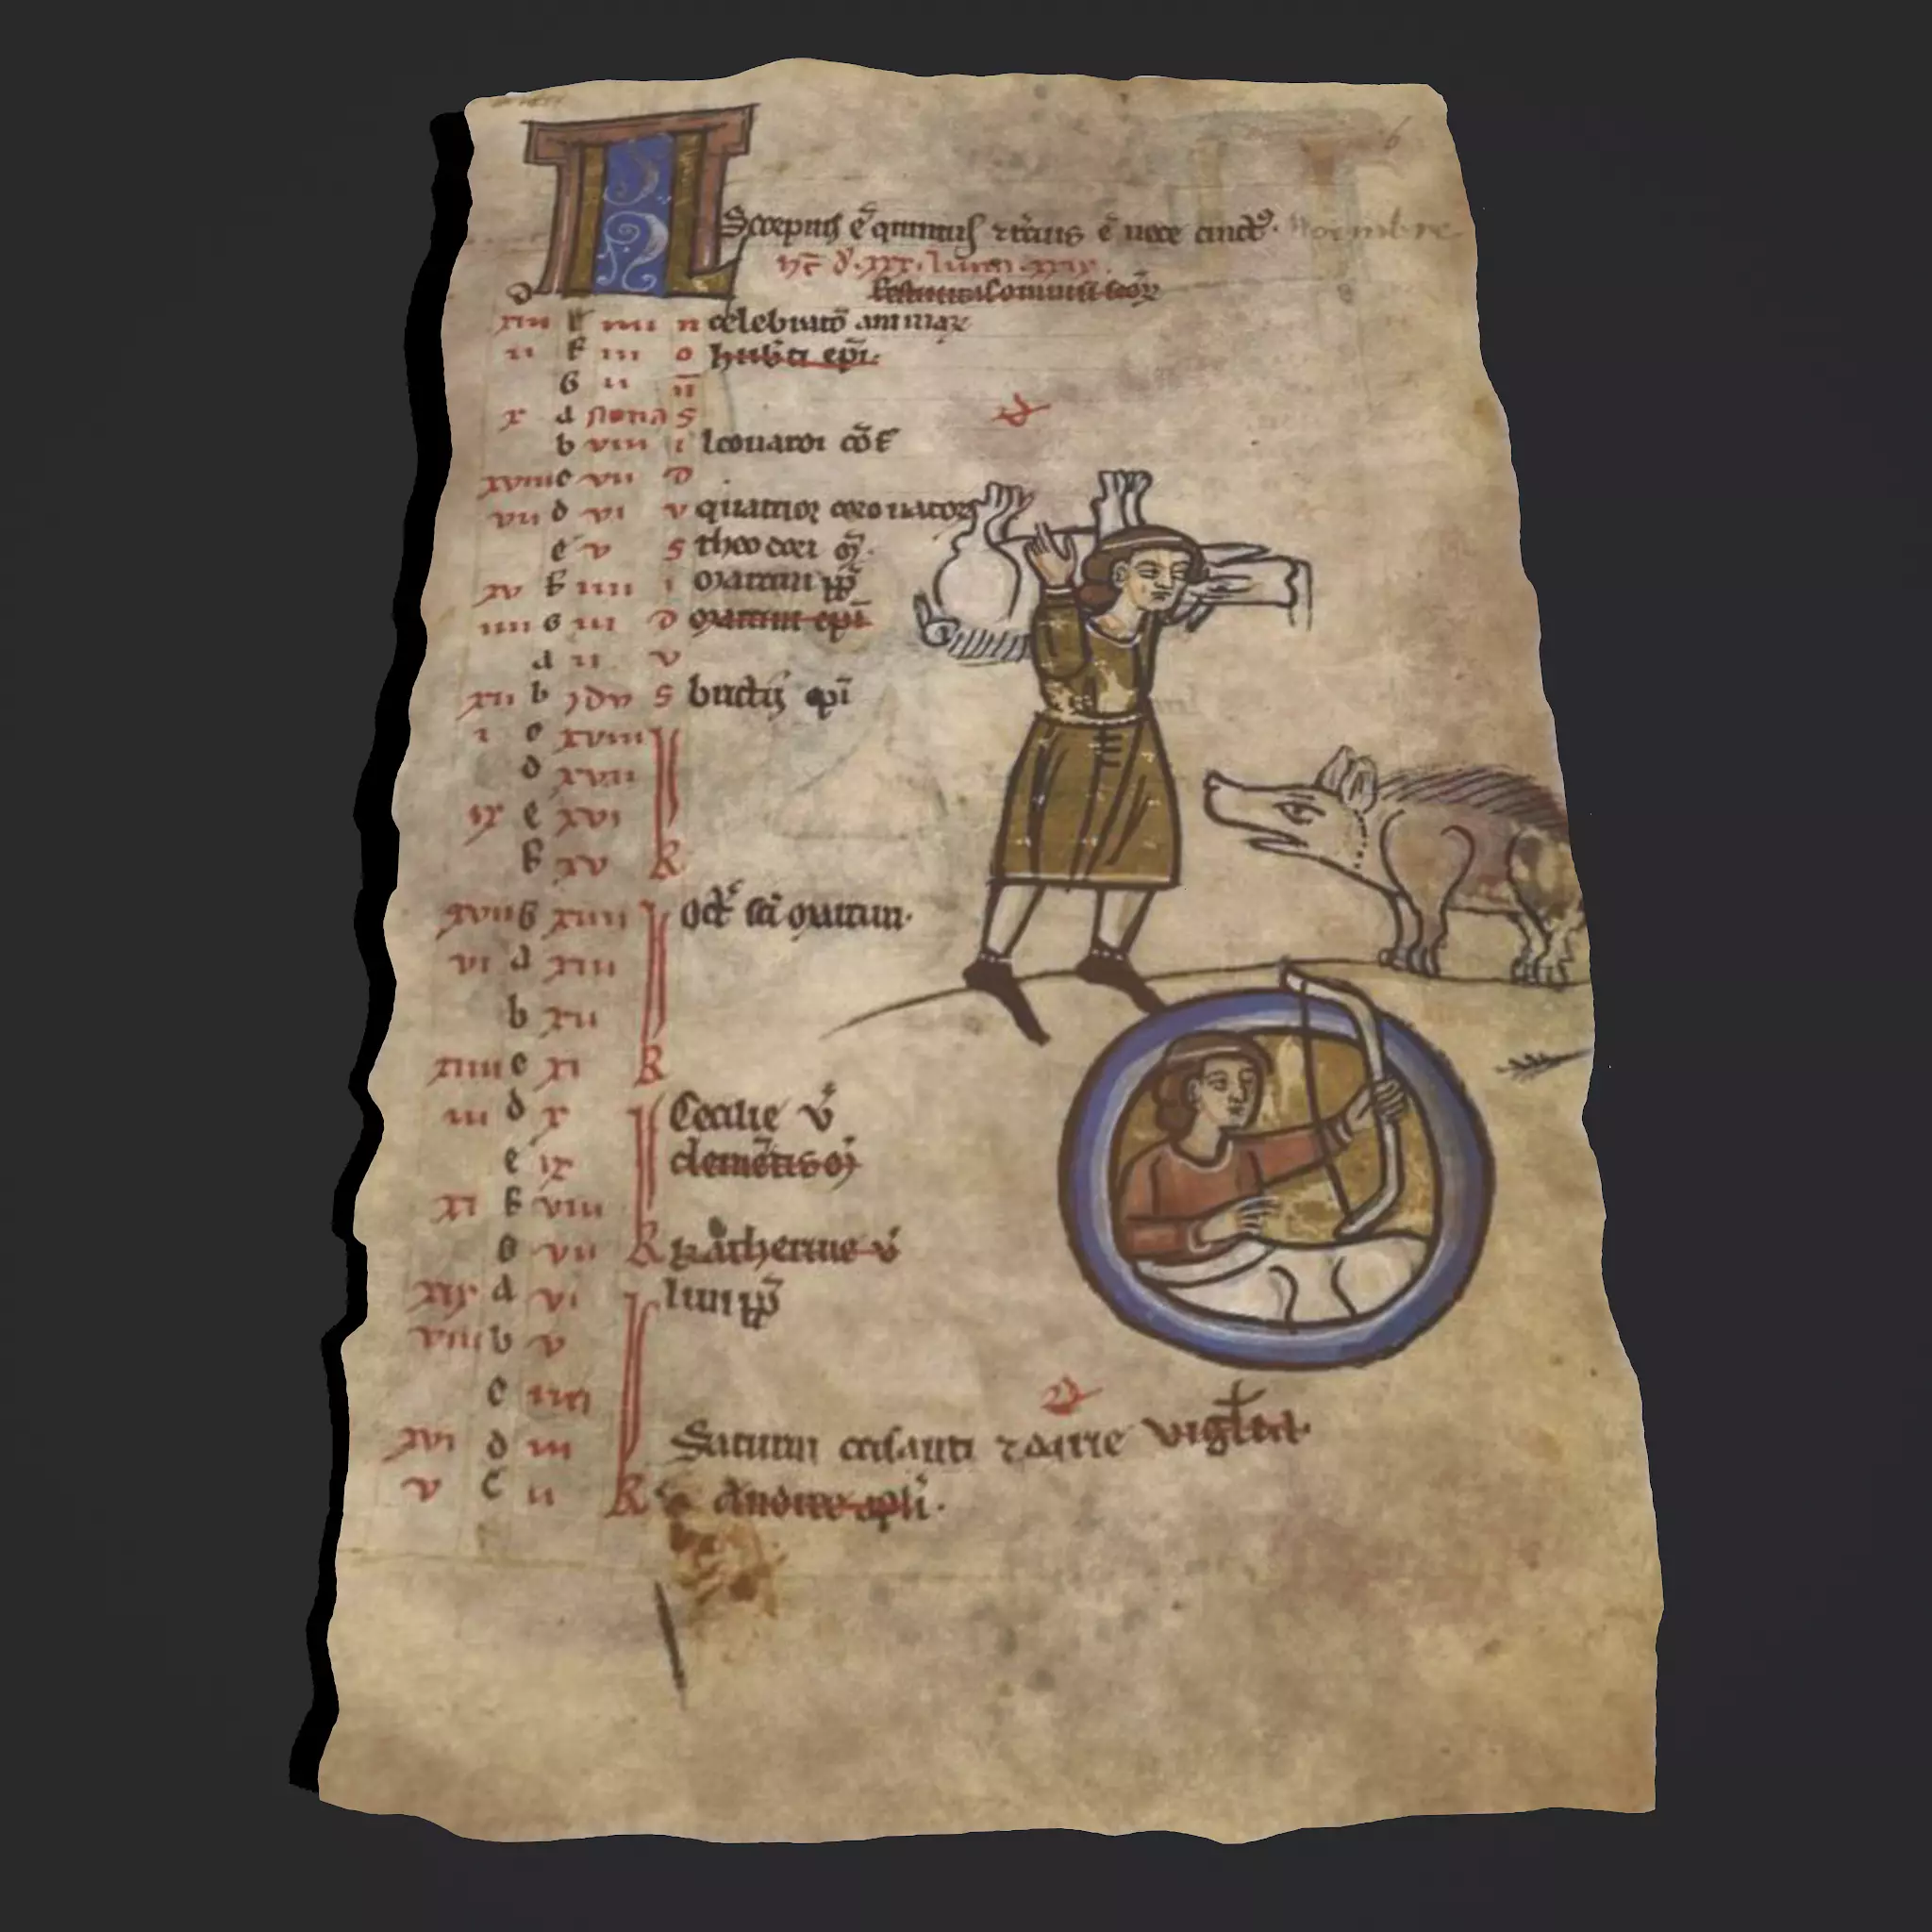 KL
Scorpius ē quintus ⁊ tcius ē nece cinctꝰ. Novembre
hͨ dʼ. xxx. luna. xxix.
d festiuitas omniū scōꝝ
xiii e iiii n celebratō animaꝝ
ii f iii o hub̄ti ep̄i.
G ii n̄
x a Nonas S
b viii i leonardi cōf
xviii c vii D
vii d vi v quatuoꝝ coronatoꝝ
e v S theodori m̄.
xv f iiii i martini pp̄
iiii G iii D martini ep̄i
a ii v
xii b ydus S brictij ep̄i
i c xviii k
d xvii
ix e xvi
f xv R
xvii G xiiii k oct' sc̄i martini.
vi a xiii
b xii
xiiii c xi R
iii d x k Cecilie v̄
e ix clemētis m̄
xi f viii
G vii R katherine v̄
xix a vi k lini pp̄
viii b v
c iiii
xvi d iii Saturnini crisanti ⁊ darie vigilia.
v e ii R Andree apl̄i.